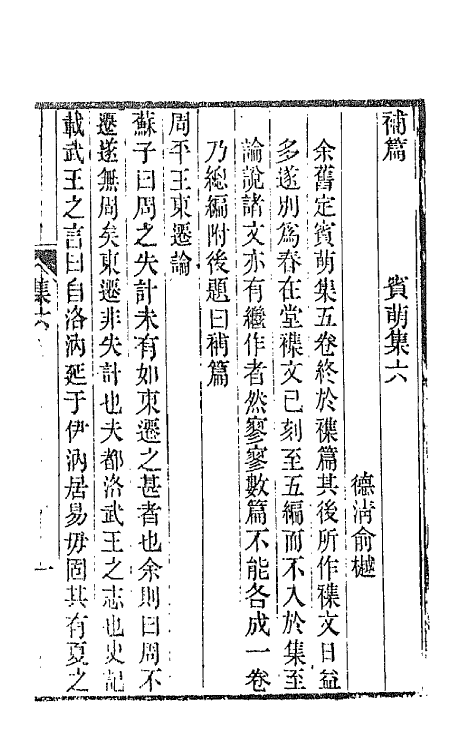 補篇　賓萌集六
德清俞樾
余舊定賓萌集五卷終於襍篇其後所作襍文日益
多遂別爲春在堂襍文已刻至五編而不入於集至
論說諸文亦有繼作者然寥寥數篇不能各成一卷
乃總編附後題曰補篇
周平王東遷論
蘇子曰周之失計未有如東遷之甚者也余則曰周不
遷遂無周矣東遷非失計也夫都洛武王之志也史記
載武王之言曰自洛汭延于伊汭居易毋固其有夏之
集六
一